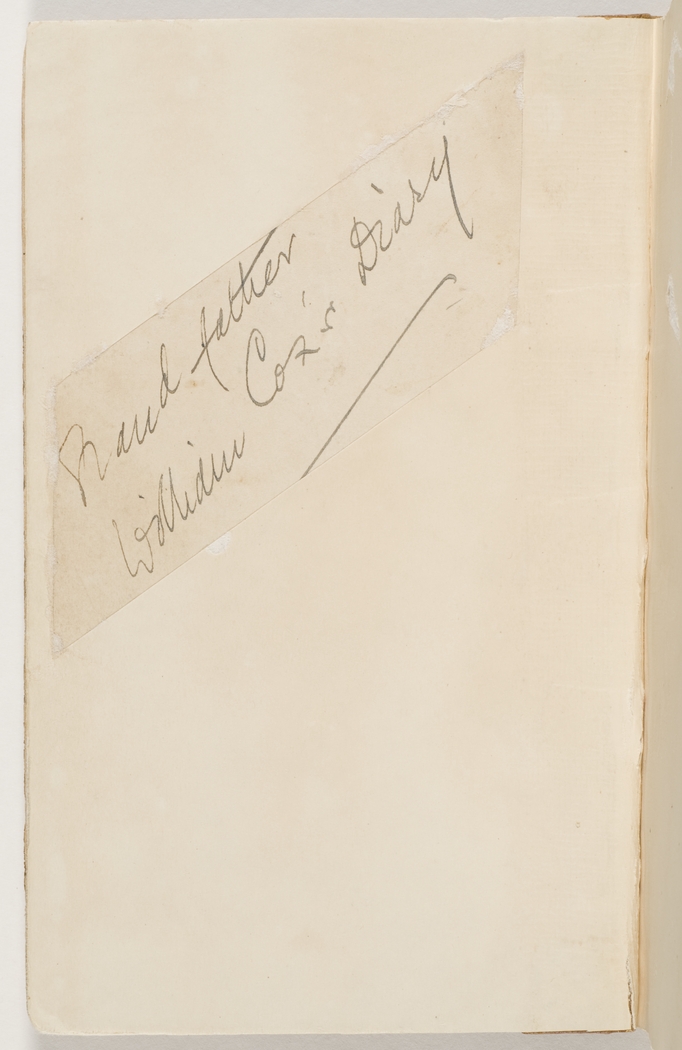 Grand father
William Cox's Diary